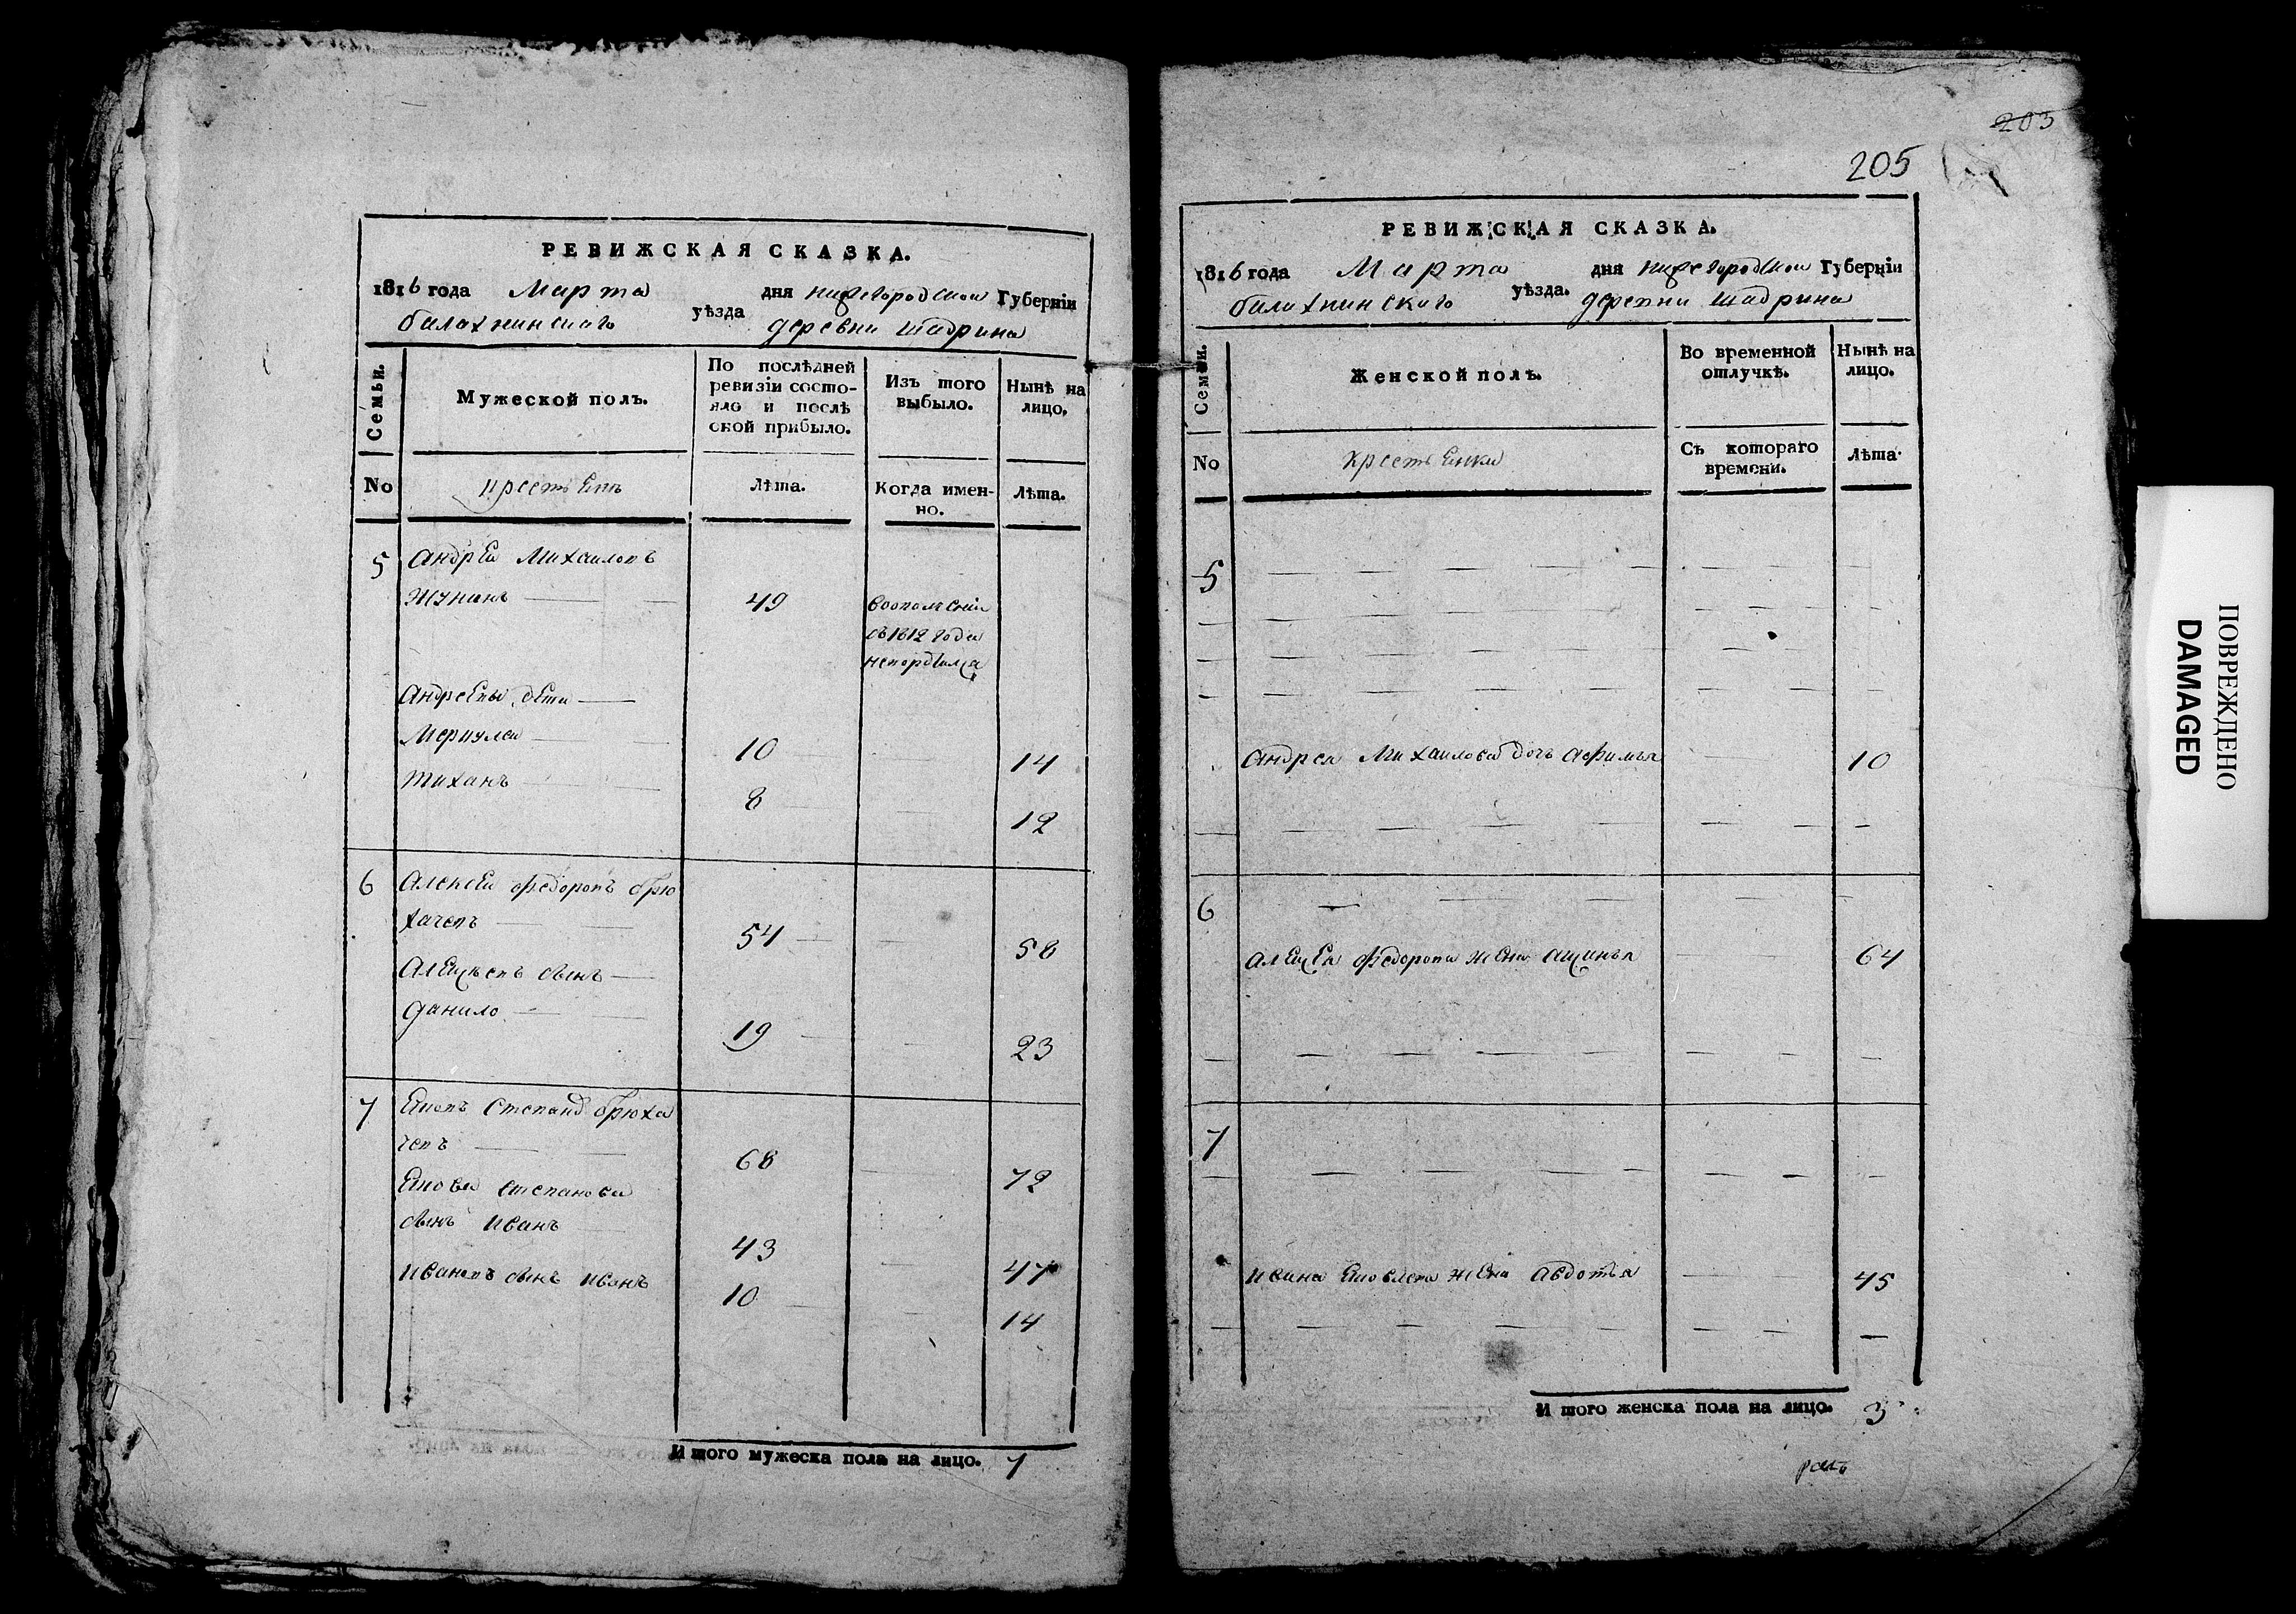 РЕВИЖСКАЯ СКАЗКА.
1816 года Марта дня нижегородской Губерніи
балахнинскаго уѣзда деревни шадрина
Семьи.
Мужеской полъ.
По послѣдней
ревизіи состо-
яло и послѣ
оной прибыло.
Изъ того
выбыло.
Нынѣ на
лицо.
No
Лѣта.
Когда имен-
но.
Лѣта.
5 Андреи Михаиловъ
49
съ 1812 года
Андреевы дети
Меркулеи 10 14
тиханъ 8 12
6 Алексеи федоровъ брю
хачевъ 54 58
Алексеевъ сынъ
данило 19 23
7 Яковъ Степанъ брюха
чевъ 68 72
Якова степанова
сынъ иванъ 43 47
ивановъ сынъ иванъ 10 14
И того мужеска пола на лицо. 7
203
205
РЕВИЖСКАЯ СКАЗКА.
1816 года Марта дня нижегородской Губерніи
балахнинскаго уѣзда. деревни шадрина
Семьи.
Женской полъ.
Во временной
отлучкѣ.
Нынѣ на
лицо.
No
крестьянки
Съ котораго
времени.
Лѣта
5
Андрея Михаилова дочь афимья 10
6
Алексея федорова жена акулина 64
7
ивана яковлева жена авдотья 45
И того женска пола на лицо. 3
ПОВРЕЖДЕНО
DAMAGED